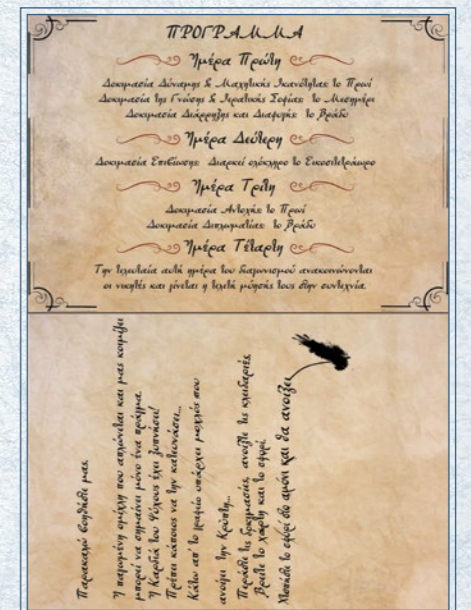 ΠΡΟΓΡΑΜΜΑ
Ημέρα Πρώτη
Δοκιμασία Δύναμης & Μαχητικής Ικανότητας: το Πρωί
Δοκιμασία της Γνώσης & Ιερατικής Σοφίας: το Μεσημέρι
Δοκιμασία Διάρρηξης και Διαφυγής: το Βράδυ
Ημέρα Δεύτερη
Δοκιμασία Επιβίωσης: Διαρκεί ολόκληρο το Εικοσιτετράωρο
Ημέρα Τρίτη
Δοκιμασία Αντοχής: το Πρωί
Δοκιμασία Διπλωματίας: το Βράδυ
Ημέρα Τέταρτη
Την τελευταία αυτή ημέρα του διαγωνισμού ανακοινώνονται
οι νικητές και γίνεται η τελετή μύησής τους στην συντεχνία.
Παρακαλώ βοηθήστε μας.
Η παγωμένη ομίχλη που απλώνεται και μας κοιμίζει
μπορεί να σημαίνει μόνο ένα πράγμα.
Η Καρδιά του Ψύχους έχει ξυπνήσει!
Πρέπει κάποιος να την κατευνάσει...
Κάτω απ' το γραφείο υπάρχει μοχλός που
ανοίγει την Κρύπτη...
Περάστε τις δοκιμασίες, ανοίξτε τις κλειδαριές,
βρείτε το χάρτη και το σφυρί.
Χτυπήστε το σφυρί στο αμόνι και θα ανοίξει